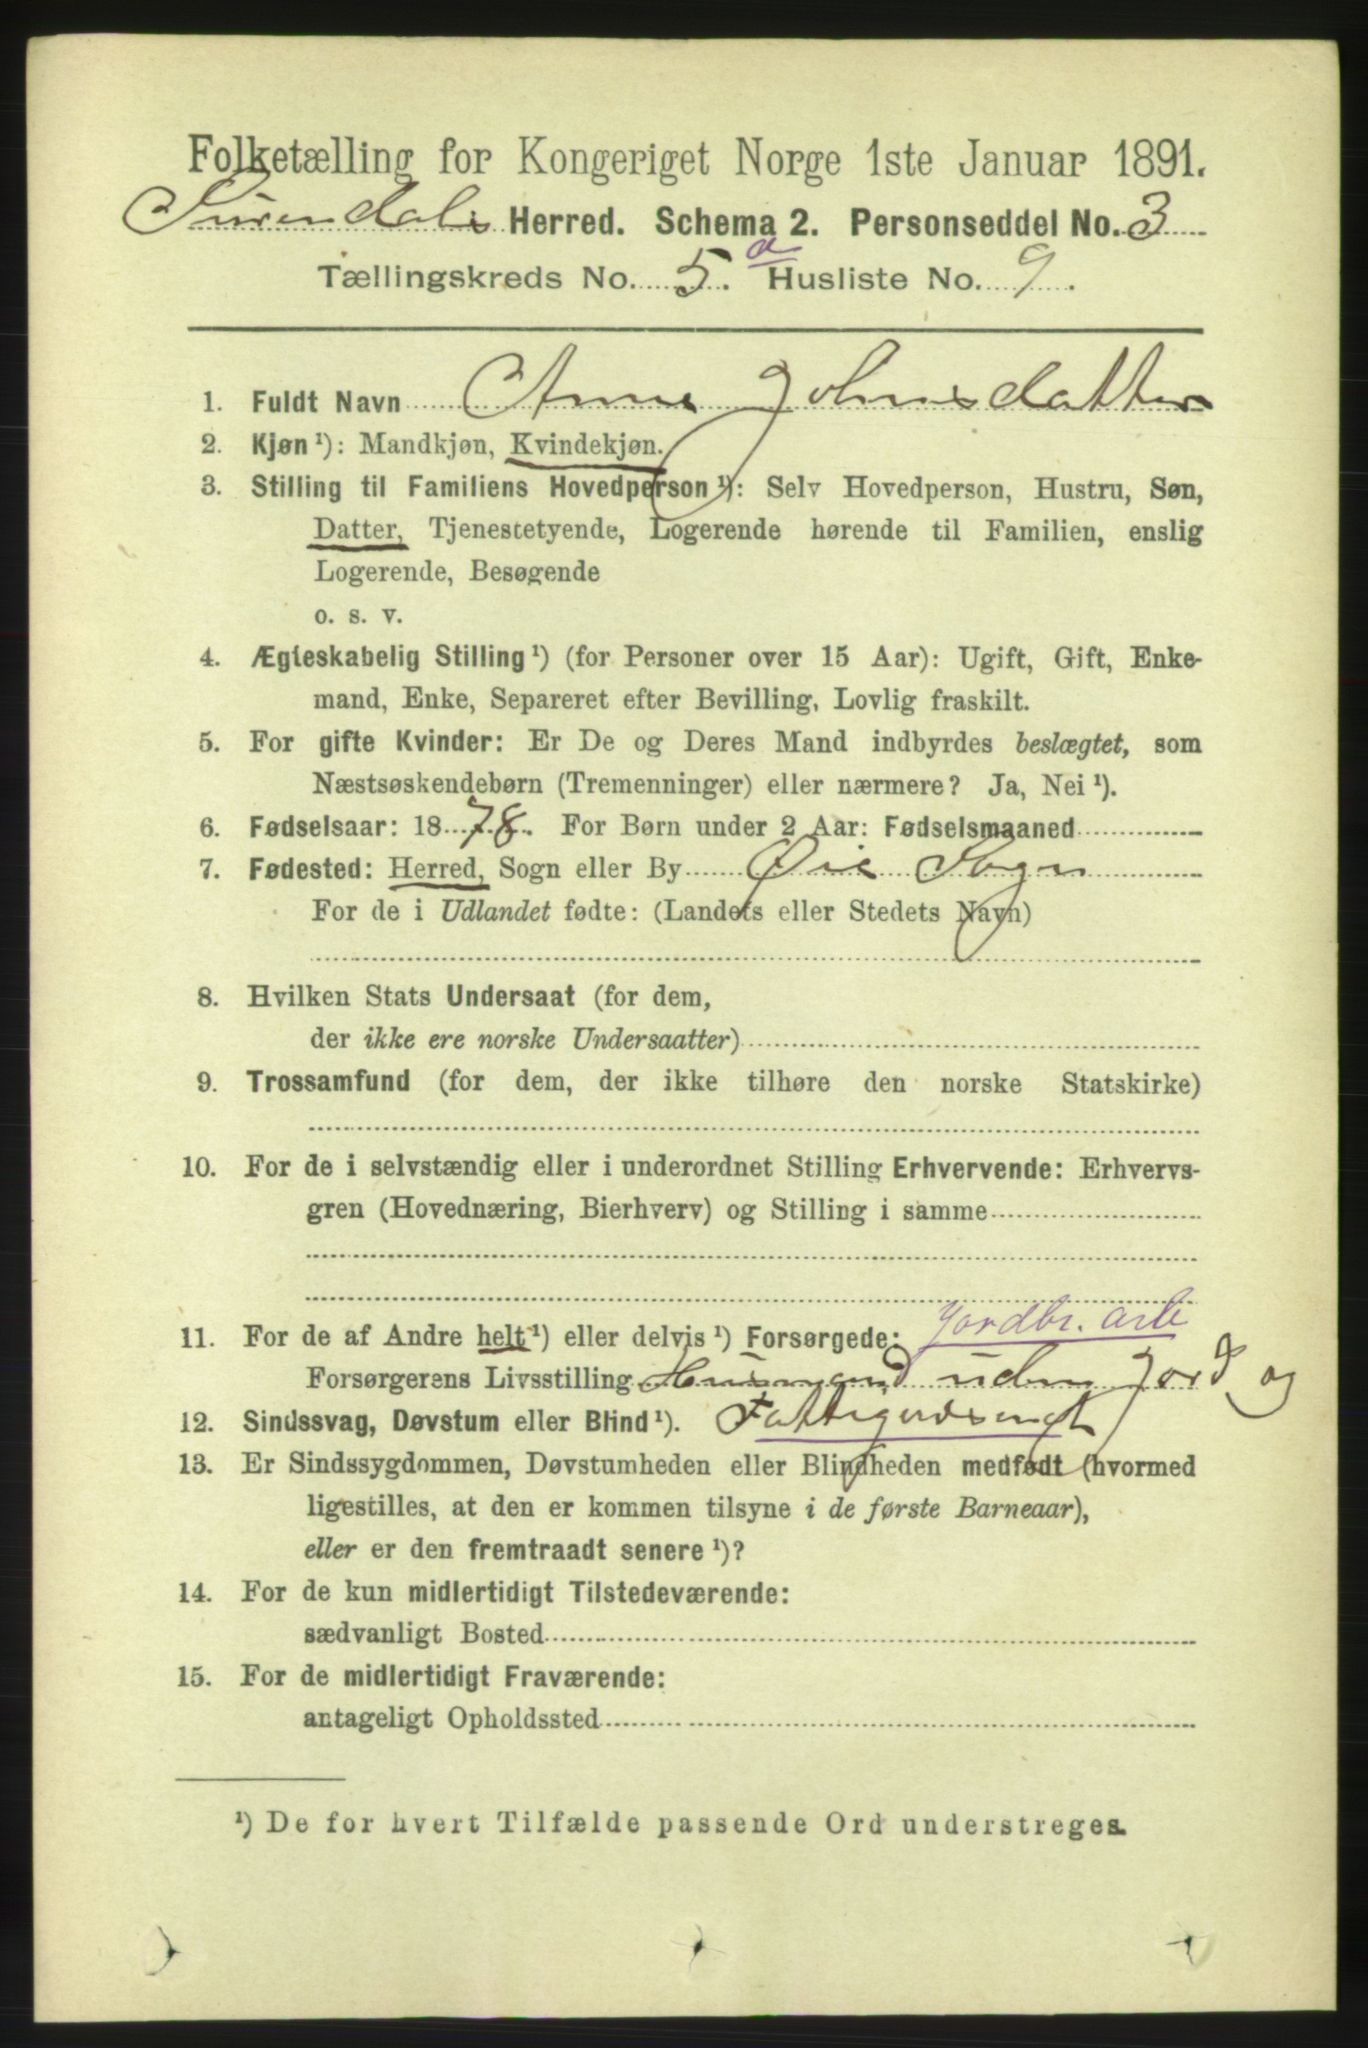 Folketælling for Kongeriget Norge 1ste Januar 1891.
Surendals Herred. Schema 2. Personseddel No. 3
Tællingskreds No. 5 a. Husliste No. 9.
1. Fuldt Navn Anne Johnsdatter
2. Kjøn ¹): Mandkjøn, Kvindekjøn.
3. Stilling til Familiens Hovedperson ¹): Selv Hovedperson, Hustru, Søn,
Datter, Tjenestetyende, Logerende hørende til Familien, enslig
Logerende, Besøgende
o. s. v.
4. Ægteskabelig Stilling ¹) (for Personer over 15 Aar): Ugift, Gift, Enke-
mand, Enke, Separeret efter Bevilling, Lovlig fraskilt.
5. For gifte Kvinder: Er De og Deres Mand indbyrdes beslægtet, som
Næstsøskendebørn (Tremenninger) eller nærmere? Ja, Nei ¹).
6. Fødselsaar: 1878. For Børn under 2 Aar: Fødselsmaaned
7. Fødested: Herred, Sogn eller By Øie Sogn
For de i Udlandet fødte: (Landets eller Stedets Navn)
8. Hvilken Stats Undersaat (for dem,
der ikke ere norske Undersaatter)
9. Trossamfund (for dem, der ikke tilhøre den norske Statskirke)
10. For de i selvstændig eller i underordnet Stilling Erhvervende: Erhvervs-
gren (Hovednæring, Bierhverv) og Stilling i samme
Jordbr. arb
11. For de af Andre helt ¹) eller delvis ¹) Forsørgede:
Forsørgerens Livsstilling Husmand uden Jord og
12. Sindssvag, Døvstum eller Blind ¹). Fattigunds
13. Er Sindssygdommen, Døvstumheden eller Blindheden medfødt (hvormed
ligestilles, at den er kommen tilsyne i de første Barneaar),
eller er den fremtraadt senere ¹)?
14. For de kun midlertidigt Tilstedeværende:
sædvanligt Bosted
15. For de midlertidigt Fraværende:
antageligt Opholdssted
¹) De for hvert Tilfælde passende Ord understreges.